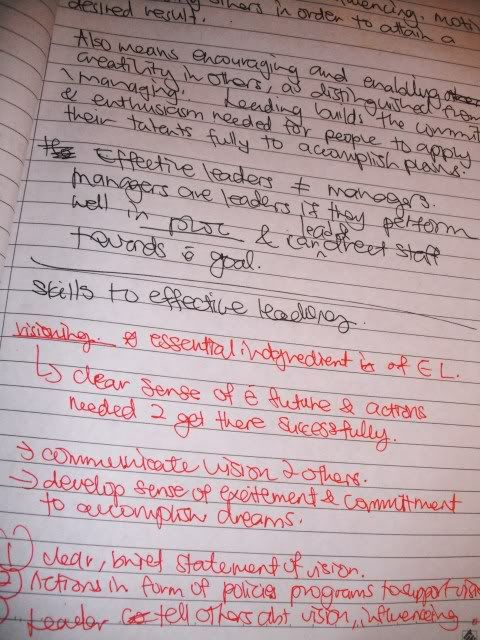 others in order to attain a
desired result.
Also means encouraging and enabling
creativity in others, as distinguished from
managing. Leading builds the commit
& enthusiasm needed for people to apply
their talents fully to accomplish plans.
* Effective leaders ≠ managers.
managers are leaders if they perform
well in POLC & can lead/direct staff
towards ē goal.
Skills to effective leading.
visioning. essential indgredient is of EL.
↳ clear sense of ē future & actions
needed 2 get there sucessfully.
→ communicate vision 2 others.
→ develop sense of excitement & committment
to accomplish dreams.
1) clear, brief statement of vision.
2) Actions in form of policies programs to support visio
Leader tell others abt vision, influencing